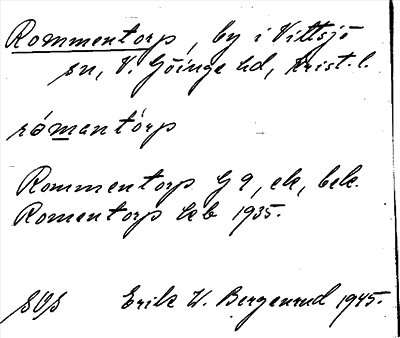 Rommentorp, by i Vittsjö
sn, V. Göinge hd, Krist. l.
råmantårp
Rommentorp G 9, ek, bek.
Romentorp kb 1935.
Erik W. Bergenrud 1945.